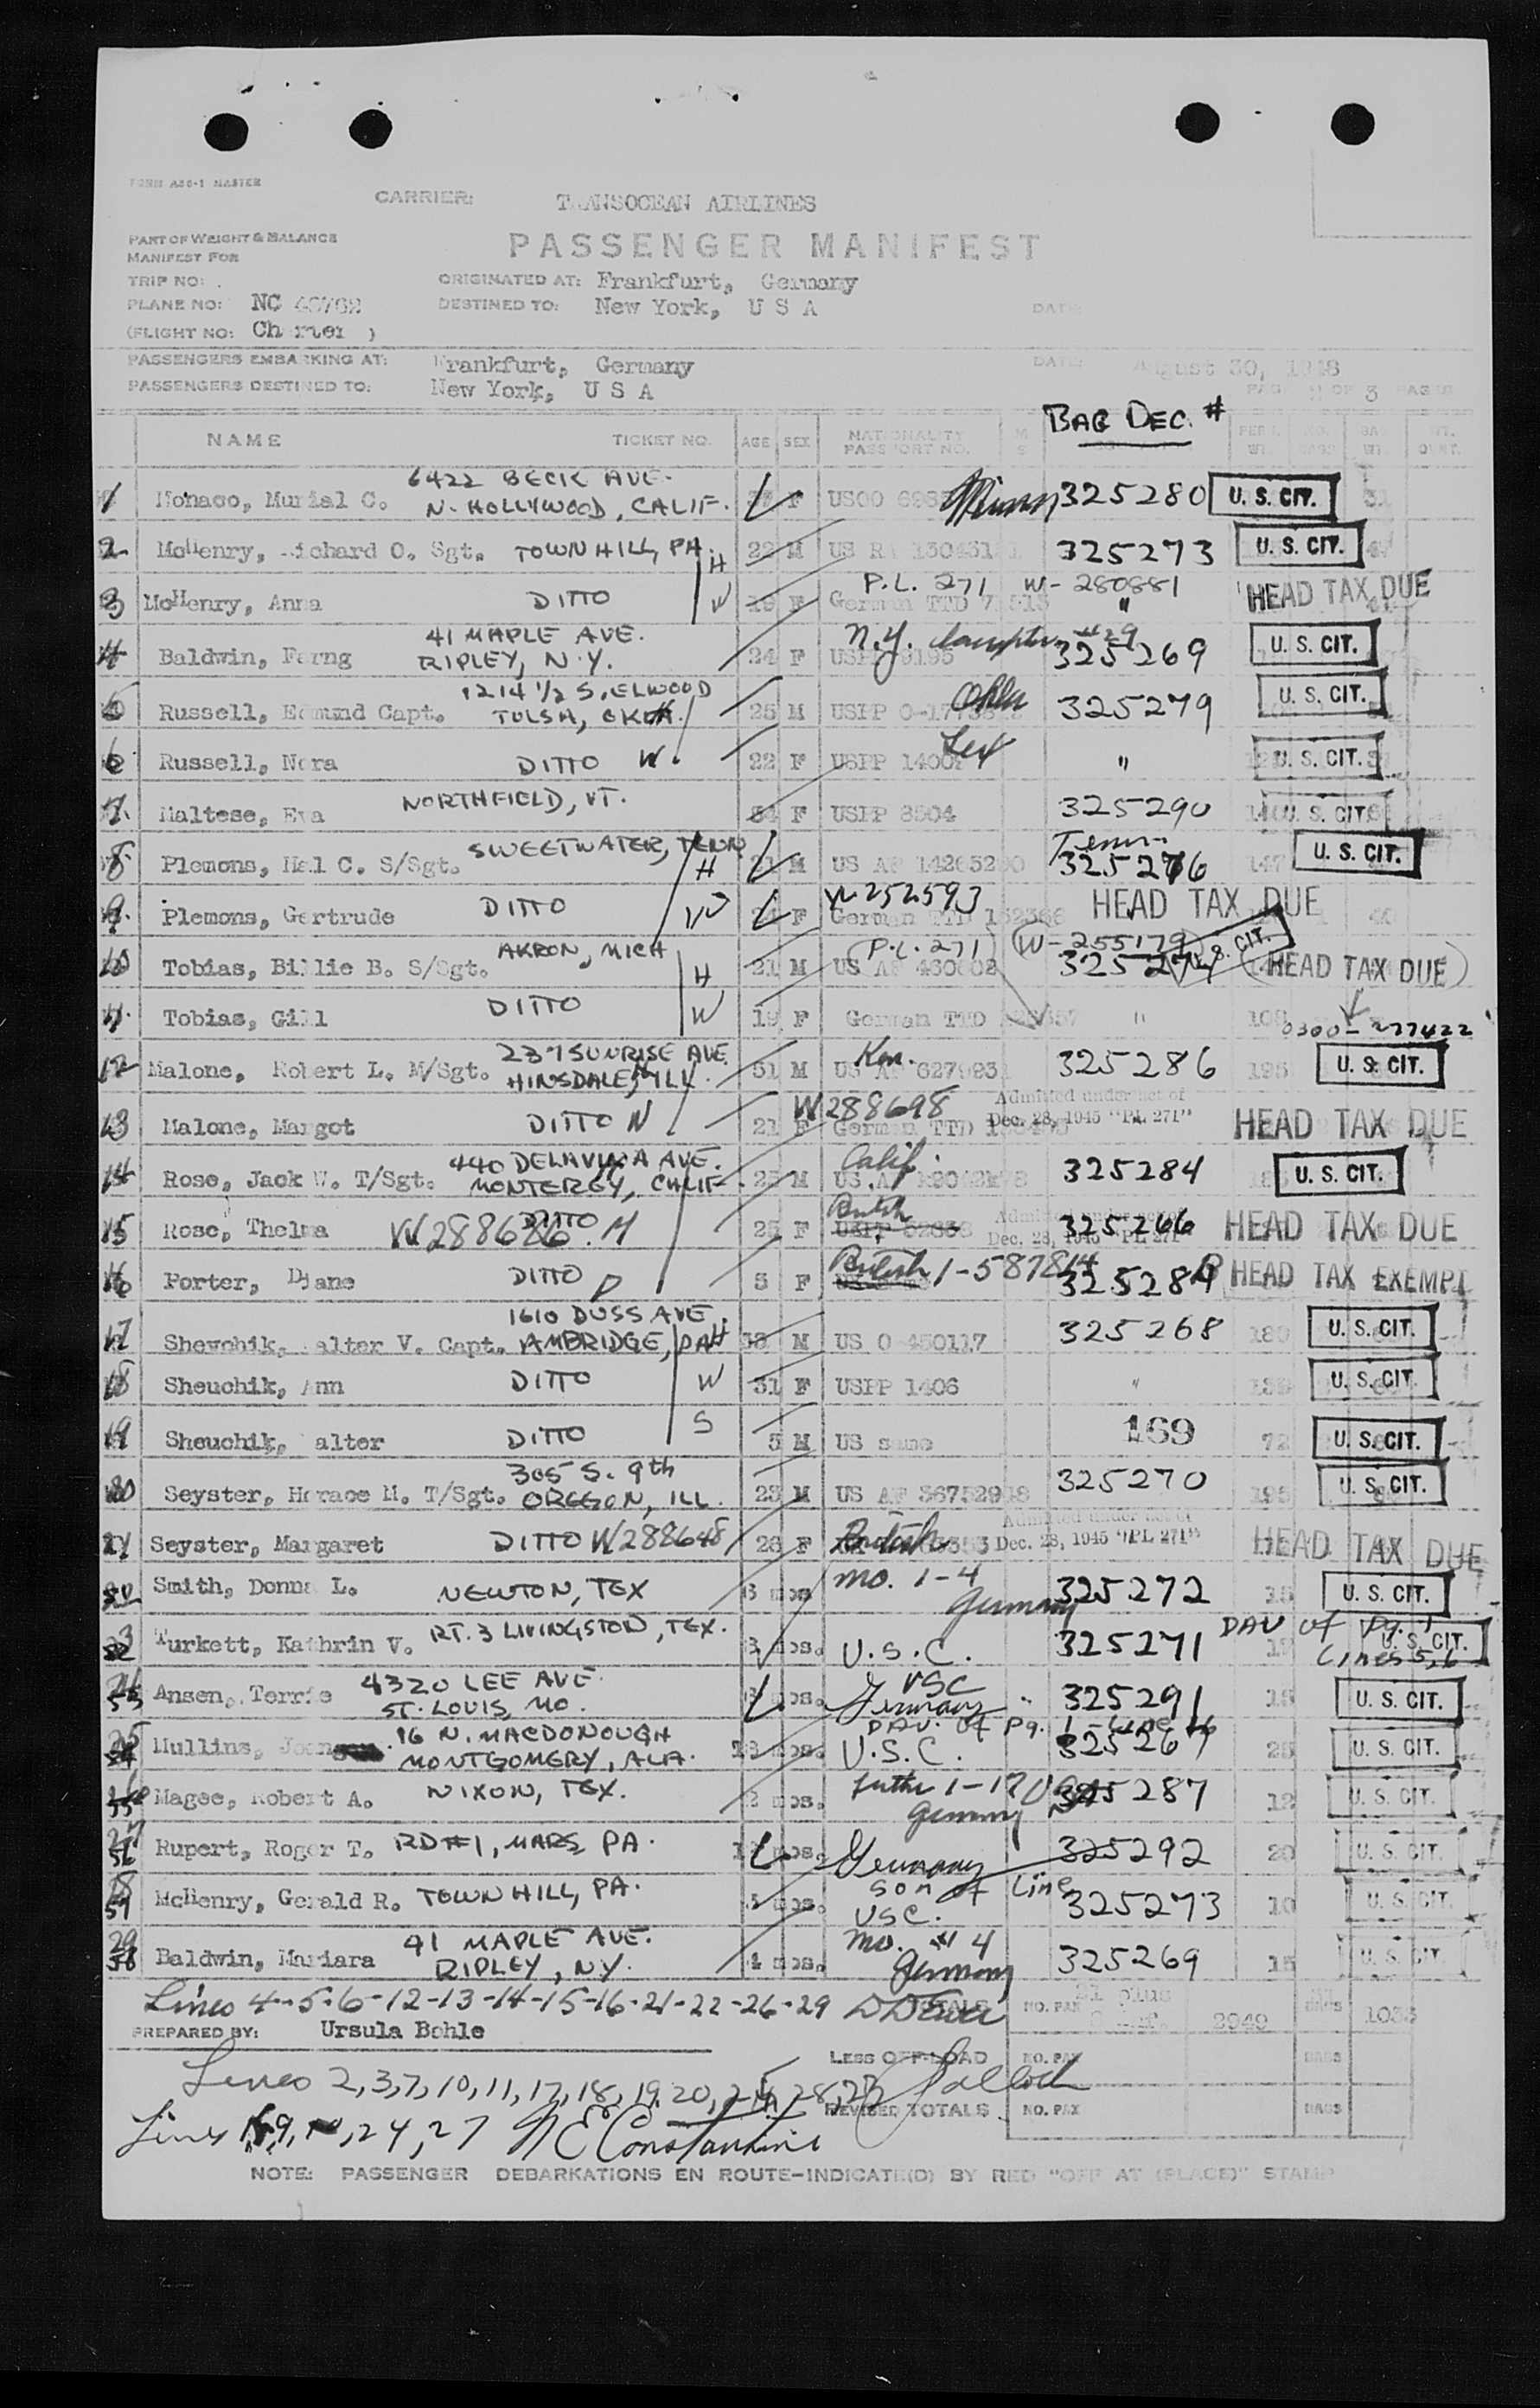 FORM ASC-1 MASTER
CARRIER: TRANSOCEAN AIRLINES
PART OF WEIGHT & BALANCE
MANIFEST FOR
PASSENGER MANIFEST
TRIP NO:
ORIGINATED AT: Frankfurt, Germany
PLANE NO: NC
DESTINED TO: New York, U S A
DATE:
(FLIGHT NO: Charter )
PASSENGERS EMBARKING AT: Frankfurt, Germany
DATE: August 30, 1948
PASSENGERS DESTINED TO: New York, U S A
OF 3 PAGES
BAG DEC. #
NAME TICKET NO. AGE SEX NATIONALITY PASSPORT NO.
6422 BECK AVE.
1 Monaco, Murial C. N. HOLLYWOOD, CALIF. F 325280 U. S. CIT.
2 McHenry, Richard O. Sgt. TOWN HILL, PA. H 22 M 325273 U. S. CIT.
P.L. 271 W-280881
3 McHenry, Anna DITTO W 19 F German TTD " HEAD TAX DUE
41 MAPLE AVE. N.Y.
4 Baldwin, Farng RIPLEY, N.Y. 24 F 325269 U. S. CIT.
1214 1/2 S. ELWOOD
5 Russell, Edmund Capt. TULSA, OKLA. 25 M USPP Okla 325279 U. S. CIT.
6 Russell, Nora DITTO W. 22 F USPP Tex " U. S. CIT.
7 Maltese, Eva NORTHFIELD, VT. 34 F USPP 8504 325290 U. S. CIT.
SWEETWATER, TENN Tenn
8 Plemons, Hal C. S/Sgt. H 21 M US AF 325276 U. S. CIT.
W252593
9 Plemons, Gertrude DITTO W F German TTD HEAD TAX DUE
AKRON, MICH P.L. 271 W-255179 U. S. CIT.
10 Tobias, Billie B. S/Sgt. H 21 M US AF 325274 (HEAD TAX DUE)
11 Tobias, Gill DITTO W 19 F German TTD "
0300-277422
237 SUNRISE AVE Kan.
12 Malone, Robert L. M/Sgt. HINSDALE, ILL. 51 M US AF 325286 U. S. CIT.
W288698 Admitted under act of
13 Malone, Margot DITTO 21 F German TTD Dec. 28, 1945 "PL 271" HEAD TAX DUE
440 DELAVINA AVE. Calif.
14 Rose, Jack W. T/Sgt. MONTEREY, CALIF. M 325284 U. S. CIT.
15 Rose, Thelma DITTO W288686 25 F British Dec. 28, 1945 "PL 271" 325266 HEAD TAX DUE
16 Porter, Djane DITTO 5 F British 1-587814 325284 HEAD TAX EXEMPT
1610 DUSS AVE.
17 Shevchik, Walter V. Capt. AMBRIDGE, PA H M US O-450117 325268 U. S. CIT.
18 Sheuchik, Ann DITTO W 31 F USPP 1406 " U. S. CIT.
19 Sheuchik, Walter DITTO S 5 M US same 169 72 U. S. CIT.
305 S. 9th
20 Seyster, Horace M. T/Sgt. OREGON, ILL. 23 M US AF 325270 195 U. S. CIT.
Admitted under act of
21 Seyster, Margaret DITTO W288648 26 F British Dec. 28, 1945 "PL 271" HEAD TAX DUE
mo. 1-4
22 Smith, Donna L. NEWTON, TEX 6 mos Germany 325272 15 U. S. CIT.
DAU of Pg. 1
23 Turkett, Kathrin V. RT. 3 LIVINGSTON, TEX. 8 mos. U.S.C. 325271 Lines 5,6 U. S. CIT.
4320 LEE AVE. USC
24 Ansen, Terrie ST. LOUIS, MO. mos. Germany 325291 15 U. S. CIT.
16 N. MACDONOUGH DAU. of Pg. 1 - Line
25 Mullins, MONTGOMERY, ALA. mos. U.S.C. 325267 25 U. S. CIT.
26 Magee, Robert A. NIXON, TEX. 2 mos. 1-17 Germany 325287 12 U. S. CIT.
27 Rupert, Roger T. RD#1, MARS, PA. mos. Germany 325292 20 U. S. CIT.
son of Line
28 McHenry, Gerald R. TOWN HILL, PA. mos. USC. 325273 10 U. S. CIT.
41 MAPLE AVE. mo. # 4
29 Baldwin, Mariara RIPLEY, NY. 4 mos. Germany 325269 15 U. S. CIT.
Lines 4-5-6-12-13-14-15-16-21-22-26-29
TOTALS NO. PAX 2949 BAGS
PREPARED BY: Ursula Bohle
LESS OFF-LOAD NO. PAX BAGS
Lines 2,3,7,10,11,17,18,19,20,
REVISED TOTALS NO. PAX BAGS
Lines 24, 27 Constantine
NOTE: PASSENGER DEBARKATIONS EN ROUTE-INDICATE(D) BY RED "OFF AT (PLACE)" STAMP